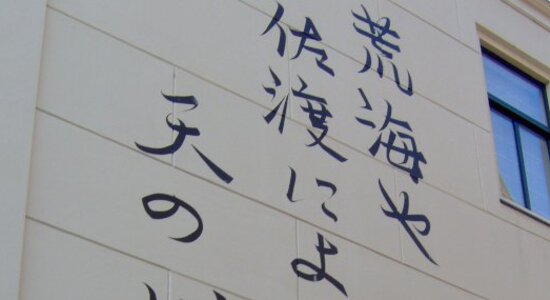 荒海や
佐渡によ
天の